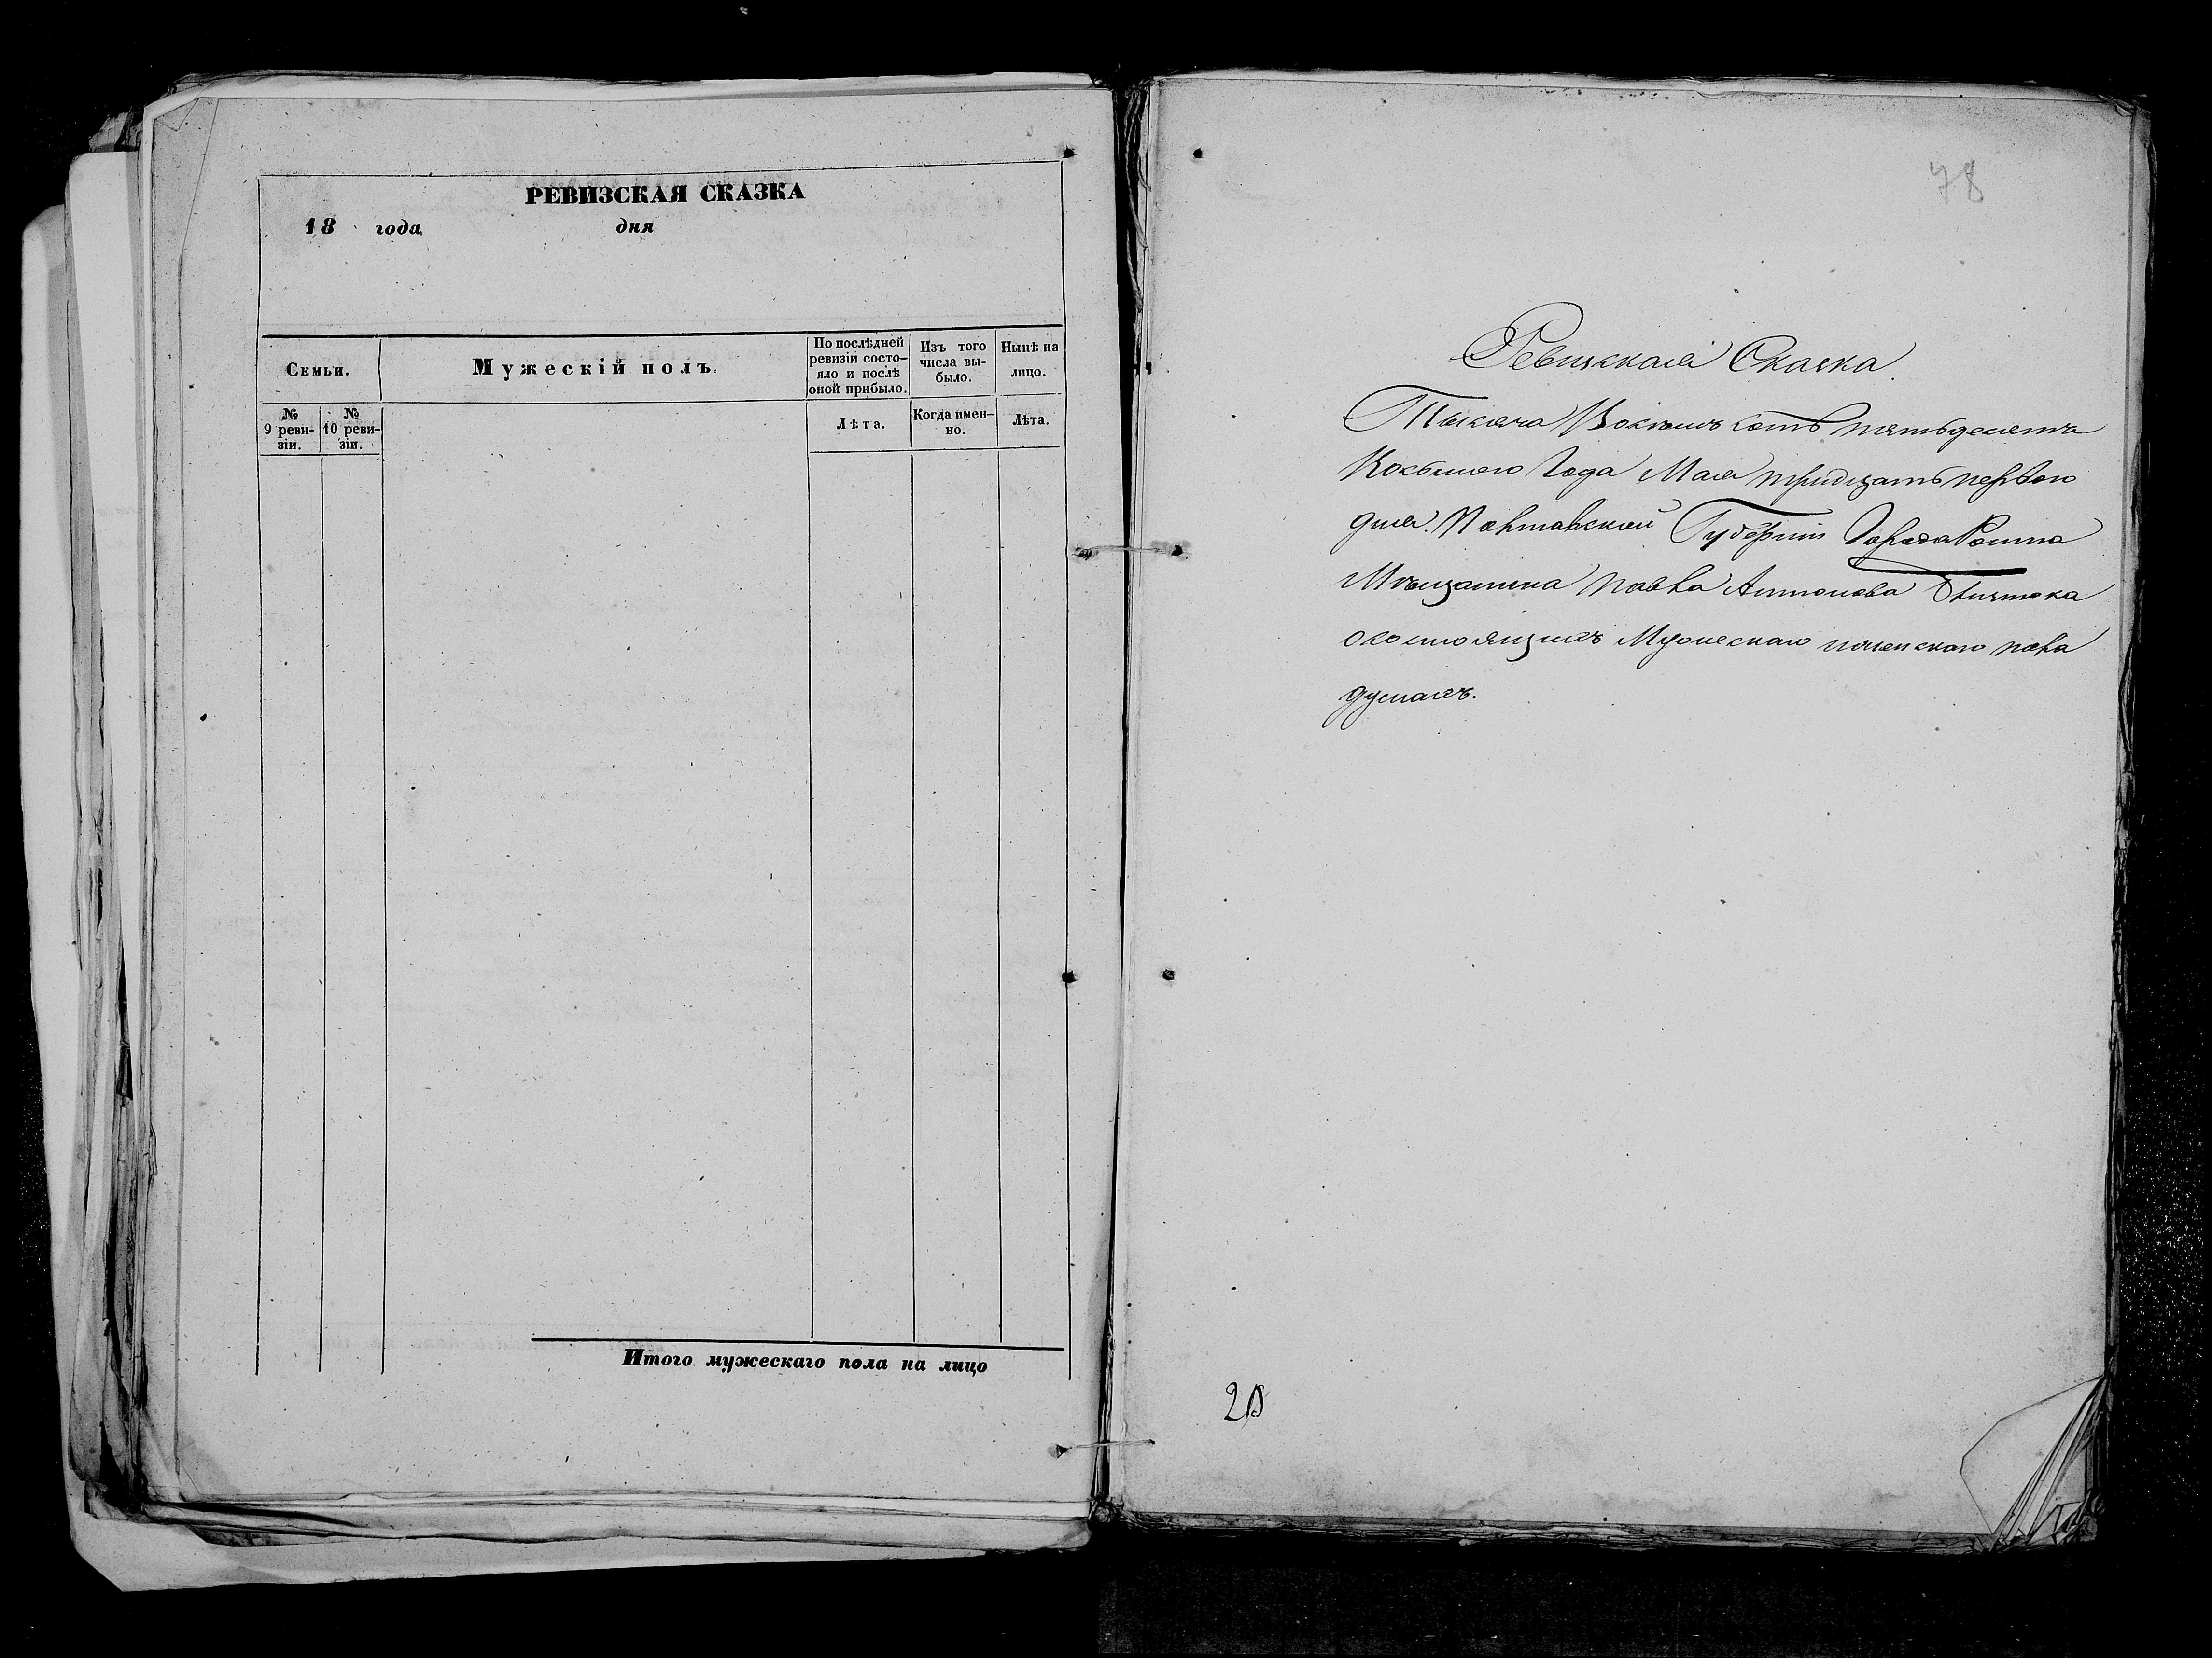 РЕВИЗСКАЯ СКАЗКА
18 года дня
Семьи.
Мужескій полъ.
По послѣдней
ревизіи состо-
яло и послѣ
оной прибыло.
Изъ того
числа вы-
было.
Нынѣ на
лицо.
№
9 реви-
зіи.
№
10 реви-
зіи.
Лѣта.
Когда имен-
но.
Лѣта.
Итого мужескаго пола на лицо
78
Ревизская Сказка.
Тысяча Восемь сотъ пятьдесятъ
Восьмого Года Мая тридцать первого
дня. Полтавской Губерніи Города Ромна
Мѣщанина Павла Антонова
о состоящихъ Мужескаго и женскаго пола
душахъ.
20